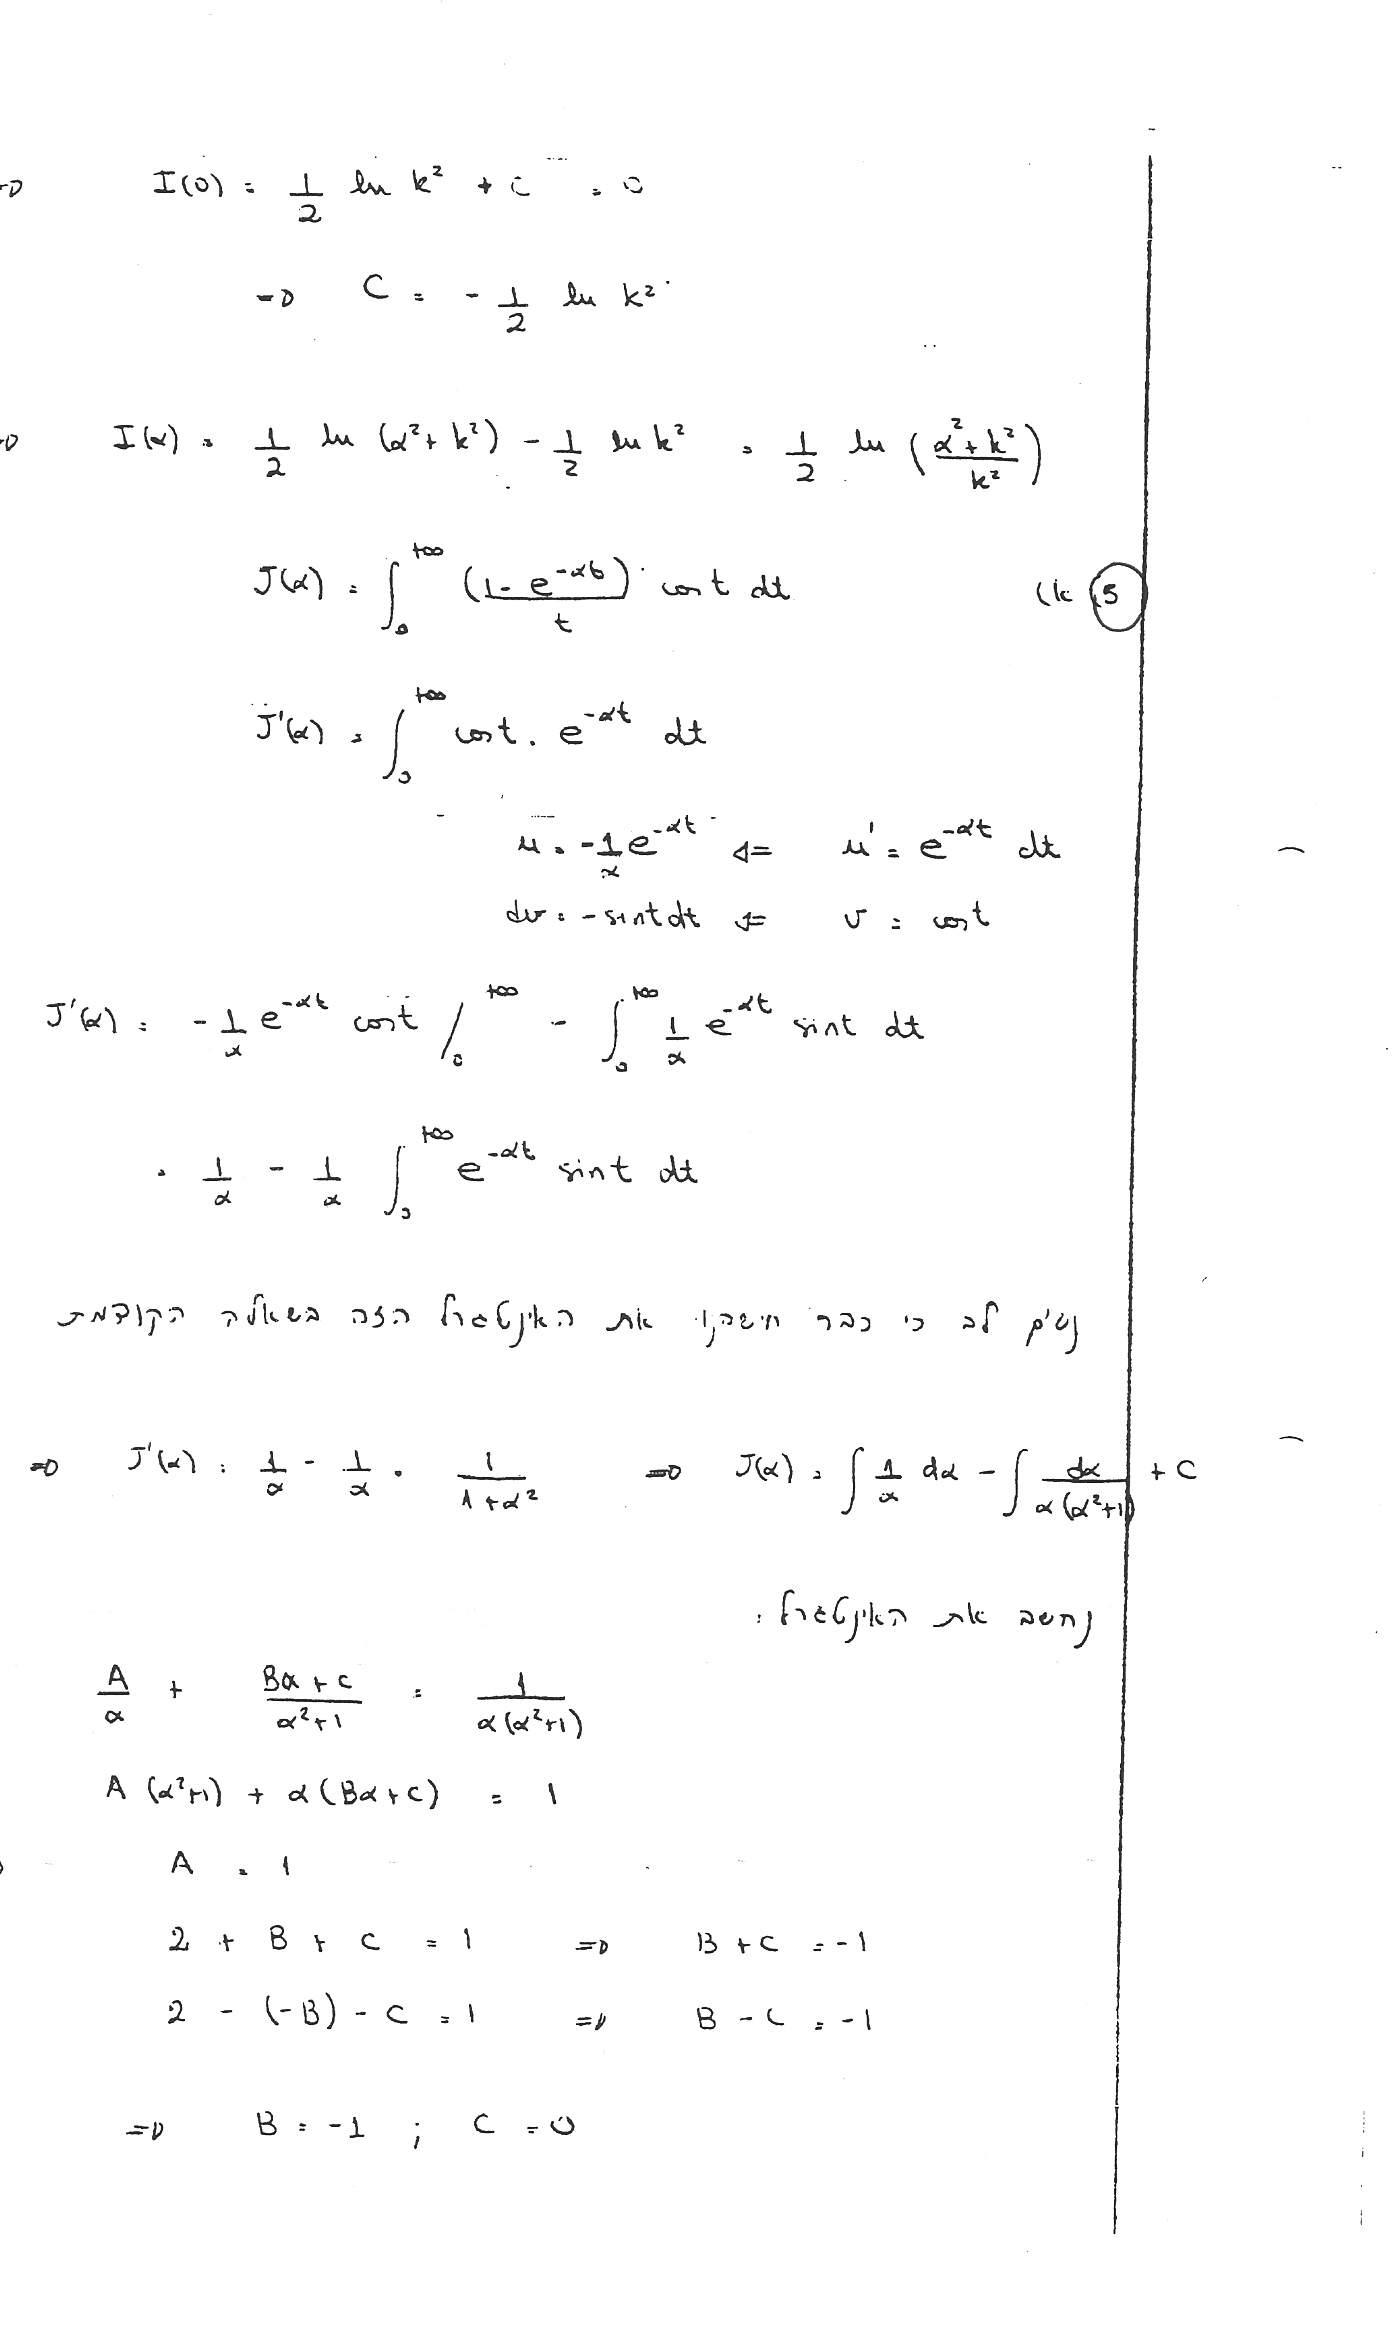 => I(0) = 1/2 ln k² + C = 0
=> C = -1/2 ln k²
=> I(α) = 1/2 ln (α² + k²) - 1/2 ln k² = 1/2 ln ((α² + k²)/k²)
5) א) J(α) = ∫₀^{+∞} (1 - e^{-αt})/t cos t dt
J'(α) = ∫₀^{+∞} cos t · e^{-αt} dt
u = -1/α e^{-αt} <= u' = e^{-αt} dt
dv = -sin t dt <= v = cos t
J'(α) = -1/α e^{-αt} cos t /₀^{+∞} - ∫₀^{+∞} 1/α e^{-αt} sin t dt
= 1/α - 1/α ∫₀^{+∞} e^{-αt} sin t dt
נשים לב כי כבר חישבנו את האינטגרל הזה בשאלה הקודמת
=> J'(α) = 1/α - 1/α · 1/(1+α²) => J(α) = ∫ 1/α dα - ∫ dα/(α(α²+1)) + C
נחשב את האינטגרל:
A/α + (Bα + C)/(α²+1) = 1/(α(α²+1))
A(α²+1) + α(Bα + C) = 1
A = 1
2 + B + C = 1 => B + C = -1
2 - (-B) - C = 1 => B - C = -1
=> B = -1 ; C = 0